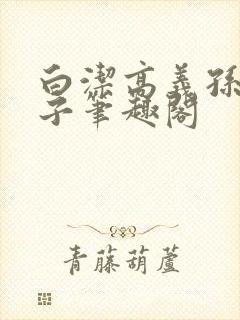 白潔高義孫
子筆趣閣
青藤葫蘆